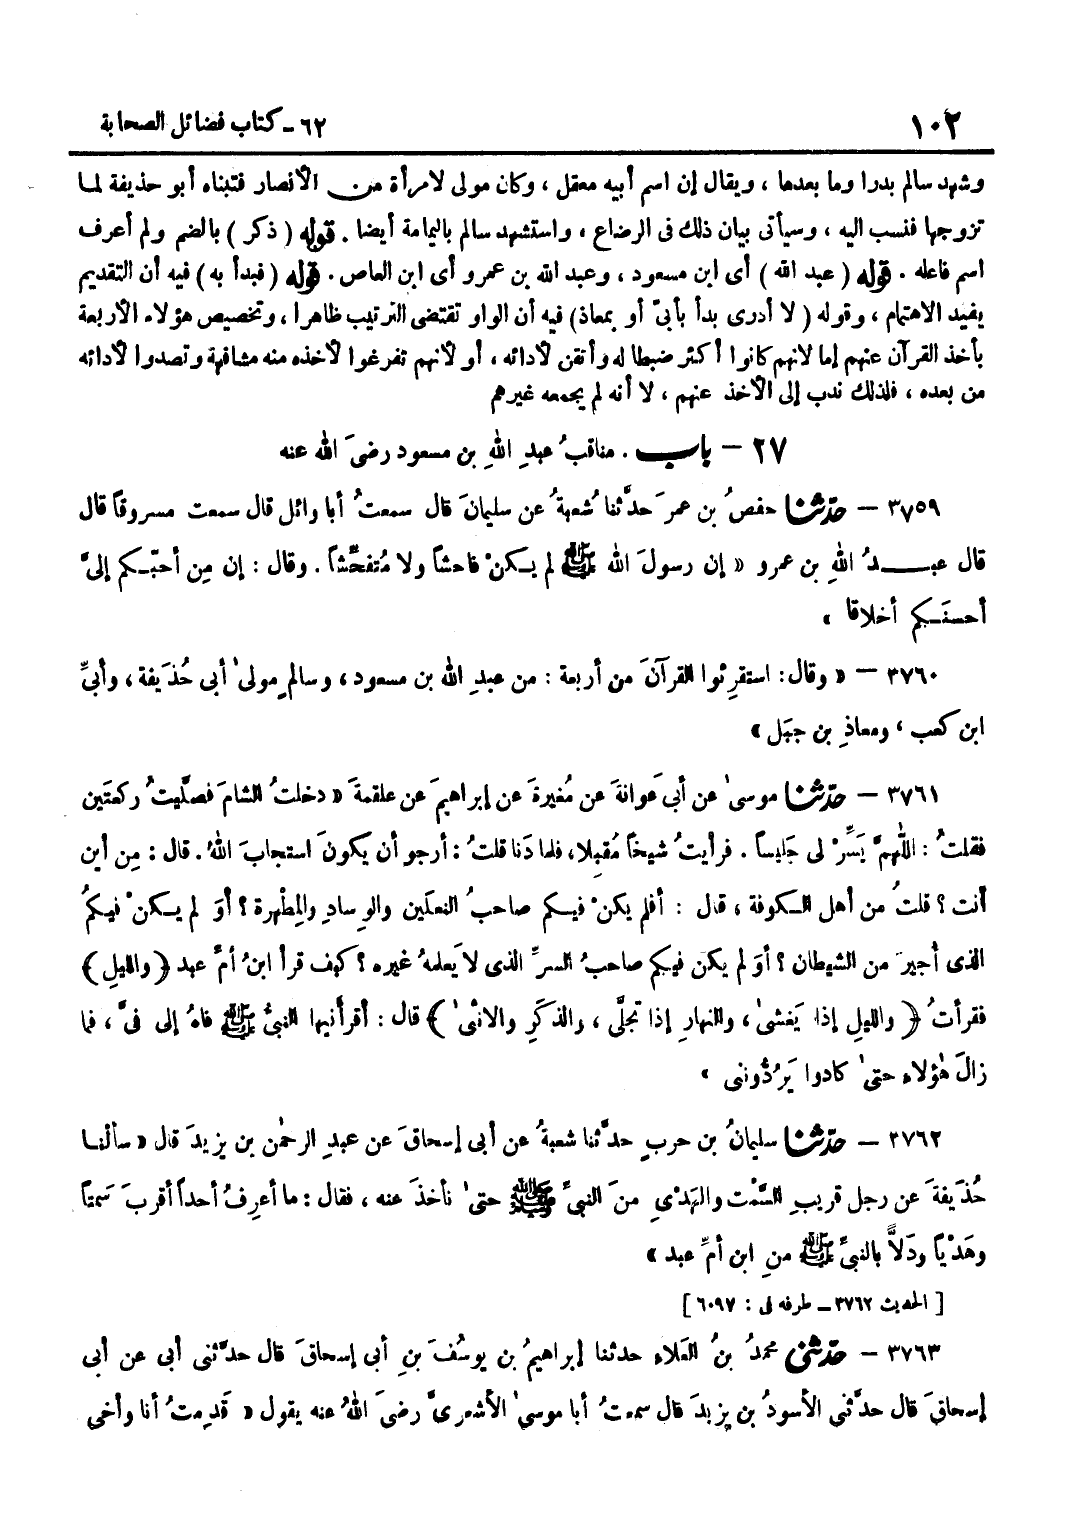 ١٠٢
٦٢ - كتاب فضائل الصحابة
وشهد سالم بدرا وما بعدها ، ويقال إن اسم أبيه معقل ، وكان مولى لامرأة من الأنصار فتبناه أبو حذيفة لما
تزوجها فنسب اليه ، وسيأتى بيان ذلك فى الرضاع ، واستشهد سالم باليمامة أيضا . قوله ( ذكر ) بالضم ولم أعرف
اسم فاعله . قوله ( عبد الله ) أى ابن مسعود ، وعبد الله بن عمرو أى ابن العاص . قوله ( فبدأ به ) فيه أن التقديم
يفيد الاهتمام ، وقوله ( لا أدرى بدأ بأبىّ أو بمعاذ ) فيه أن الواو تقتضى الترتيب ظاهرا ، وتخصيص هؤلاء الأربعة
بأخذ القرآن عنهم إما لانهم كانوا أكثر ضبطا له وأتقن لأدائه ، أو لأنهم تفرغوا لأخذه منه مشافهة وتصدوا لأدائه
من بعده ، فلذلك ندب إلى الأخذ عنهم ، لا أنه لم يجمعه غيرهم
٢٧ - باب . مناقبُ عبدِ اللهِ بن مسعود رضىَ الله عنه
٣٧٥٩ - حدّثنا حفصُ بن عمرَ حدَّثنا شُعبةُ عن سليمانَ قال سمعتُ أبا وائل قال سمعت مسروقاً قال
قال عبدُ اللهِ بن عمرو « إن رسولَ الله ﷺ لم يكنْ فاحشاً ولا مُتفحِّشاً . وقال : إن مِن أحبّكم إلىَّ
أحسنَكم أخلاقا »
٣٧٦٠ - « وقال : استقرِئوا القرآنَ من أربعة : من عبدِ الله بن مسعود ، وسالمٍ مولىٰ أبى حُذَيفة ، وأبىِّ
ابن كعب ، ومعاذِ بن جبَل »
٣٧٦١ - حدّثنا موسىٰ عن أبى عَوانةَ عن مُغيرةَ عن إبراهيمَ عن علقمةَ « دخلتُ الشامَ فصلَّيتُ ركعتَين
فقلتُ : اللّهمَّ يَسِّرْ لى جَليساً . فرأيتُ شيخاً مُقبِلا ، فلما دَنا قلتُ : أرجو أن يكونَ استجابَ اللهُ . قال : مِن أين
أنت ؟ قلتُ من أهل الكوفة ، قال : أفلم يكنْ فيكم صاحبُ النعلَين والوِسادِ والمِطْهرة ؟ أوَ لم يكنْ فيكمُ
الذى أُجيرَ من الشيطان ؟ أوَ لم يكن فيكم صاحبُ السرِّ الذى لا يَعلمهُ غيره ؟ كيف قرأ ابنُ أمِّ عبد ﴿ والليلِ ﴾
فقرأتُ ﴿ والليلِ إذا يَغشىٰ ، والنهارِ إذا تجلَّى ، والذكَرِ والانثىٰ ﴾ قال : أقرأنيها النبىُّ ﷺ فاهُ إلى فىَّ ، فما
زالَ هٰؤلاء حتىٰ كادوا يَرُدُّونى »
٣٧٦٢ - حدّثنا سليمانُ بن حربٍ حدَّثنا شعبةُ عن أبى إسحاقَ عن عبدِ الرحمٰن بن يزيدَ قال « سألنا
حُذَيفةَ عن رجل قريبِ السَّمْت والهَدْىِ منَ النبىِّ ﷺ حتىٰ نأخذَ عنه ، فقال : ما أعرِفُ أحداً أقربَ سَمتاً
وهَدْياً ودَلاًّ بالنبىِّ ﷺ منِ ابن أمِّ عبد »
[ الحديث ٣٧٦٢ - طرفه فى : ٦٠٩٧ ]
٣٧٦٣ - حدّثنى محمدُ بنُ العَلاء حدثنا إبراهيمُ بن يوسُفَ بنِ أبى إسحاقَ قال حدَّثنى أبى عن أبى
إسحاقَ قال حدَّثنى الأسودُ بن يزيدَ قال سمعتُ أبا موسىٰ الأشعرىَّ رضىَ اللهُ عنه يقول « قَدِمتُ أنا وأخى